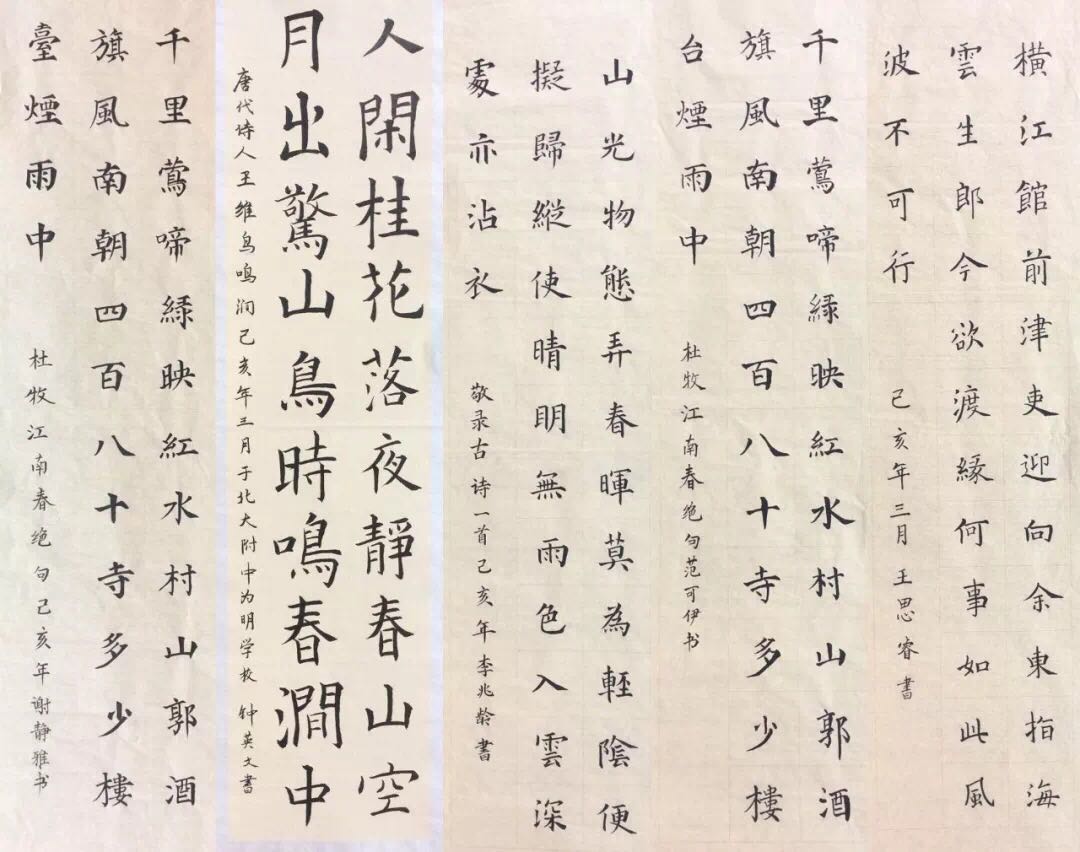 橫江館前津吏迎向余東指海
雲生郎今欲渡緣何事如此風
波不可行
己亥年三月王思睿書
千里鶯啼綠映紅水村山郭酒
旗風南朝四百八十寺多少樓
台煙雨中
杜牧江南春绝句范可伊书
山光物態弄春暉莫為輕陰便
擬歸縱使晴明無雨色入雲深
處亦沾衣
敬录古诗一首己亥年李兆龄書
人閑桂花落夜靜春山空
月出驚山鳥時鳴春澗中
唐代诗人王维鸟鸣涧己亥年三月于北大附中为明学校钟英文書
千里鶯啼綠映紅水村山郭酒
旗風南朝四百八十寺多少樓
臺煙雨中
杜牧江南春绝句己亥年谢静雅书